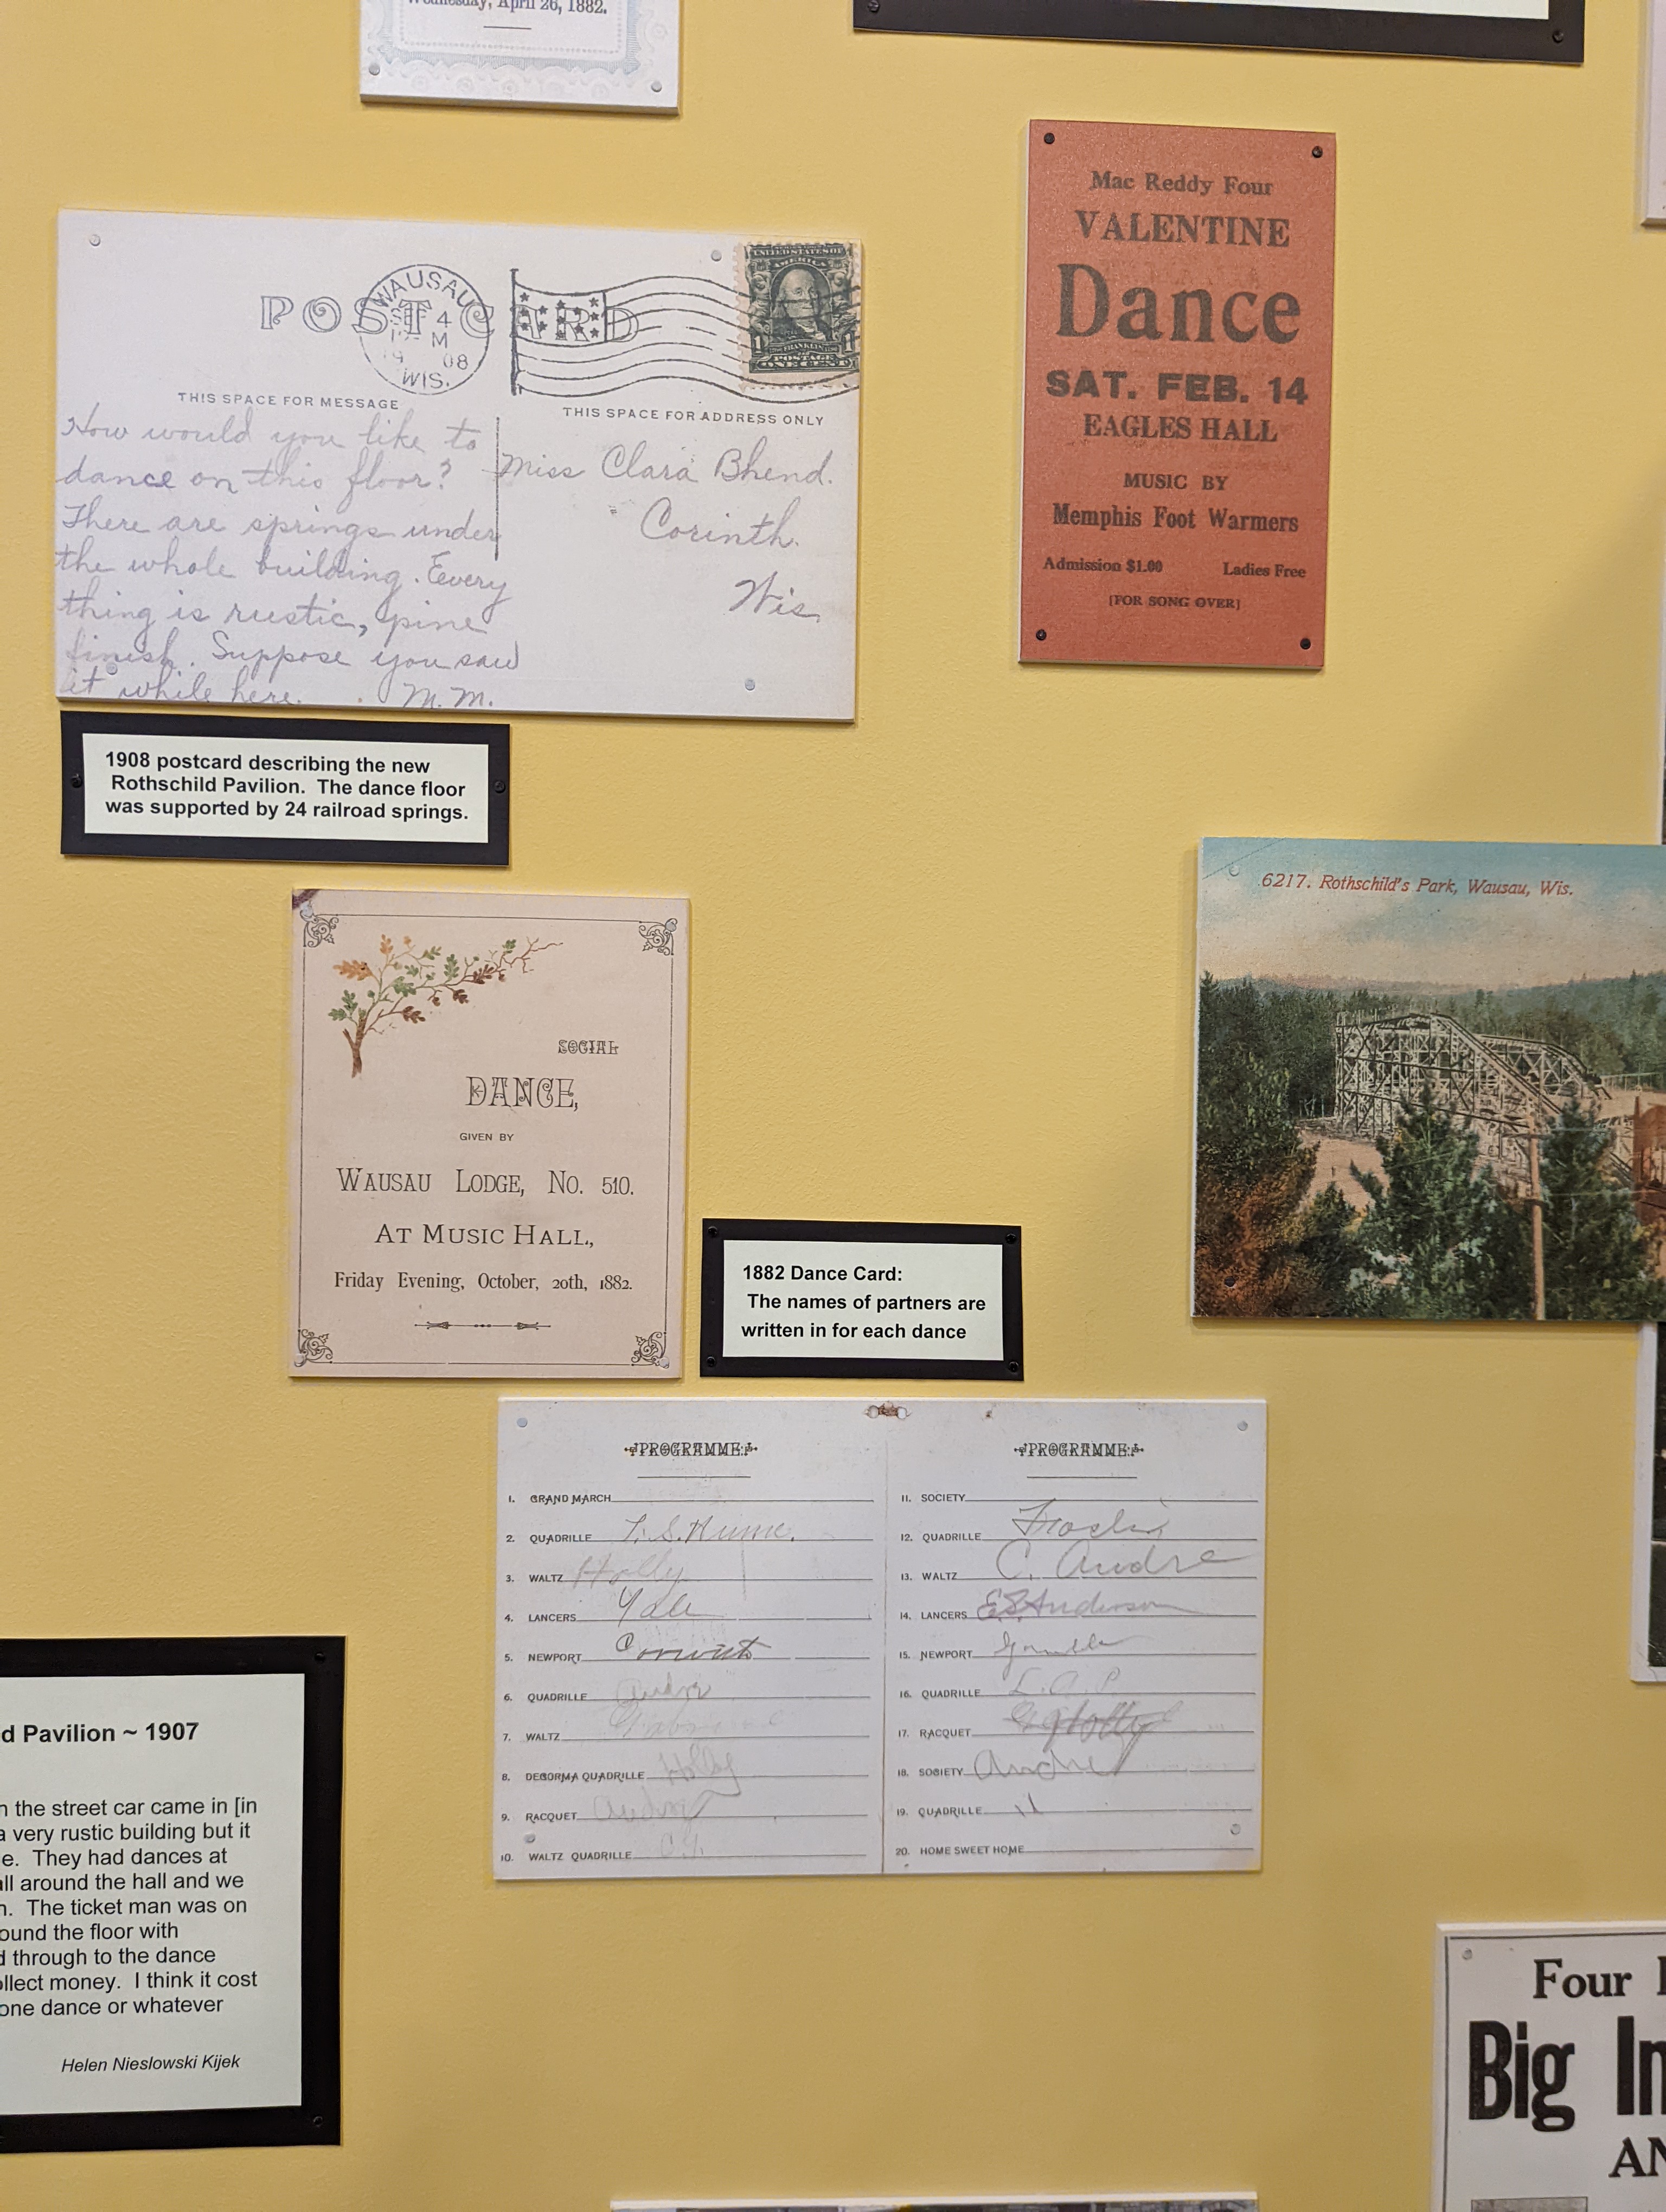 Wednesday, April 26, 1882.
POST CARD
WAUSAU
4
M
08
WIS.
UNITED STATES OF
AMERICA
1
1
FRANKLIN
POSTAGE
ONE CENT
THIS SPACE FOR MESSAGE
THIS SPACE FOR ADDRESS ONLY
How would you like to
dance on this floor?
There are springs under
the whole building. Every
thing is rustic, pine
finish. Suppose you saw
it while here. M.M.
Miss Clara Bhend.
Corinth.
Wis.
Mac Reddy Four
VALENTINE
Dance
SAT. FEB. 14
EAGLES HALL
MUSIC BY
Memphis Foot Warmers
Admission $1.00 Ladies Free
[FOR SONG OVER]
1908 postcard describing the new
Rothschild Pavilion. The dance floor
was supported by 24 railroad springs.
6217. Rothschild's Park, Wausau, Wis.
SOCIAL
DANCE,
GIVEN BY
WAUSAU LODGE, No. 510.
AT MUSIC HALL,
Friday Evening, October, 20th, 1882.
1882 Dance Card:
The names of partners are
written in for each dance
PROGRAMME:
1. GRAND MARCH
2. QUADRILLE
3. WALTZ Holly
4. LANCERS Yale
5. NEWPORT
6. QUADRILLE
7. WALTZ
8. DECORMA QUADRILLE Holly
9. RACQUET
10. WALTZ QUADRILLE
PROGRAMME:
11. SOCIETY
12. QUADRILLE
13. WALTZ C. Andre
14. LANCERS Anderson
15. NEWPORT
16. QUADRILLE
17. RACQUET Holly
18. SOCIETY Andre
19. QUADRILLE
20. HOME SWEET HOME
d Pavilion ~ 1907
n the street car came in [in
a very rustic building but it
e. They had dances at
all around the hall and we
n. The ticket man was on
ound the floor with
d through to the dance
ollect money. I think it cost
one dance or whatever
Helen Nieslowski Kijek
Four
Big In
AN